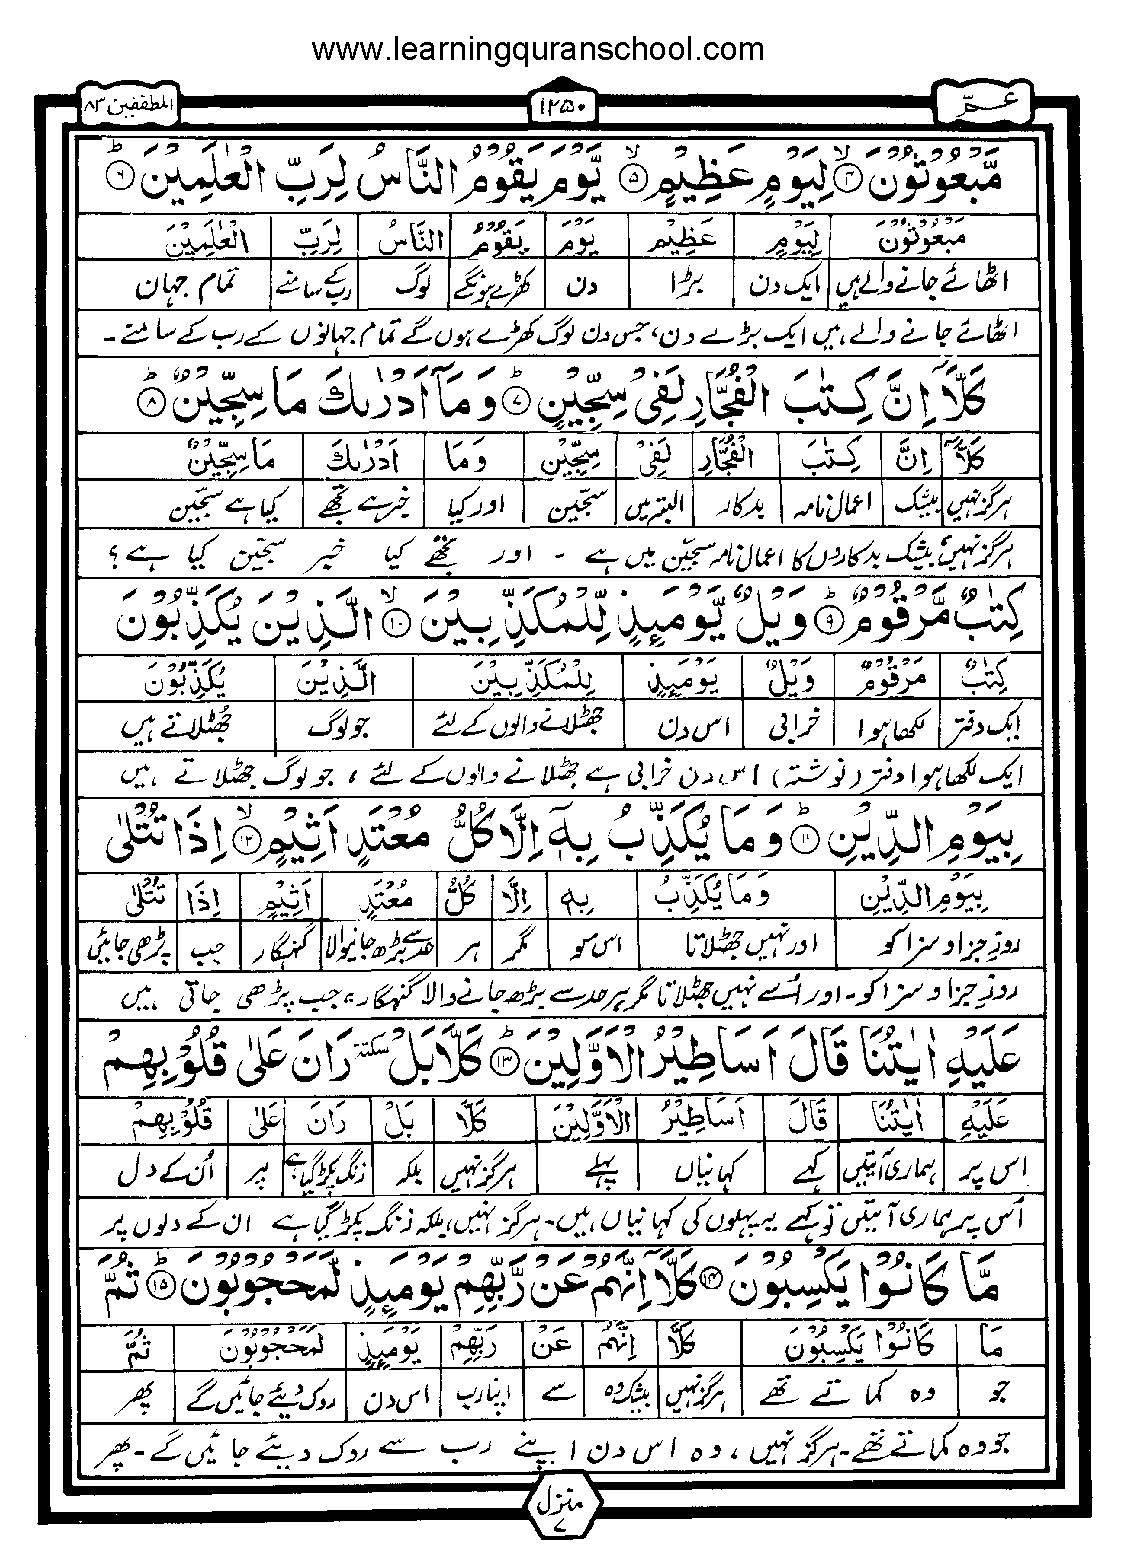 www.learningquranschool.com
المطففین ۸۳
۱۲۵۰
عمّ
مَّبْعُوْثُوْنَ ﴿۴﴾ لِيَوْمٍ عَظِيْمٍ ﴿۵﴾ يَّوْمَ يَقُوْمُ النَّاسُ لِرَبِّ الْعٰلَمِيْنَ ﴿۶﴾
مَبْعُوْثُوْنَ لِيَوْمٍ عَظِيْمٍ يَوْمَ يَقُوْمُ النَّاسُ لِرَبِّ الْعٰلَمِيْنَ
اٹھائے جانے والے ہیں ایک دن بڑا دن کھڑے ہونگے لوگ رب کے سامنے تمام جہان
اٹھائے جانے والے ہیں ایک بڑے دن، جس دن لوگ کھڑے ہوں گے تمام جہانوں کے رب کے سامنے۔
كَلَّاۤ اِنَّ كِتٰبَ الْفُجَّارِ لَفِيْ سِجِّيْنٍ ﴿۷﴾ وَمَاۤ اَدْرٰىكَ مَا سِجِّيْنٌ ﴿۸﴾
كَلَّاۤ اِنَّ كِتٰبَ الْفُجَّارِ لَفِيْ سِجِّيْنٍ وَمَا اَدْرٰىكَ مَا سِجِّيْنٌ
ہرگز نہیں بیشک اعمال نامہ بدکار البتہ میں سجّین اور کیا خبر ہے تجھے کیا ہے سجّین
ہرگز نہیں بیشک بدکاروں کا اعمال نامہ سجّین میں ہے ۔ اور تجھے کیا خبر سجّین کیا ہے ؟
كِتٰبٌ مَّرْقُوْمٌ ﴿۹﴾ وَيْلٌ يَّوْمَئِذٍ لِّلْمُكَذِّبِيْنَ ﴿۱۰﴾ الَّذِيْنَ يُكَذِّبُوْنَ
كِتٰبٌ مَرْقُوْمٌ وَيْلٌ يَوْمَئِذٍ لِلْمُكَذِّبِيْنَ الَّذِيْنَ يُكَذِّبُوْنَ
ایک دفتر لکھا ہوا خرابی اس دن جھٹلانے والوں کے لئے جو لوگ جھٹلاتے ہیں
ایک لکھا ہوا دفتر (نوشتہ) اس دن خرابی ہے جھٹلانے والوں کے لئے ، جو لوگ جھٹلاتے ہیں
بِيَوْمِ الدِّيْنِ ﴿۱۱﴾ وَمَا يُكَذِّبُ بِهٖۤ اِلَّا كُلُّ مُعْتَدٍ اَثِيْمٍ ﴿۱۲﴾ اِذَا تُتْلٰى
بِيَوْمِ الدِّيْنِ وَمَا يُكَذِّبُ بِهٖ اِلَّا كُلُّ مُعْتَدٍ اَثِيْمٍ اِذَا تُتْلٰى
روزِ جزا و سزا کو اور نہیں جھٹلاتا اس کو مگر ہر حد سے بڑھ جانیوالا گنہگار جب پڑھی جاتیں
روزِ جزا و سزا کو۔ اور اُسے نہیں جھٹلاتا مگر ہر حد سے بڑھ جانے والا گنہگار، جب پڑھی جاتی ہیں
عَلَيْهِ اٰيٰتُنَا قَالَ اَسَاطِيْرُ الْاَوَّلِيْنَ ﴿۱۳﴾ كَلَّا بَلْ سكتة رَانَ عَلٰى قُلُوْبِهِمْ
عَلَيْهِ اٰيٰتُنَا قَالَ اَسَاطِيْرُ الْاَوَّلِيْنَ كَلَّا بَلْ رَانَ عَلٰى قُلُوْبِهِمْ
اس پر ہماری آیتیں کہے کہانیاں پہلے ہرگز نہیں بلکہ زنگ پکڑ گیا ہے پر اُن کے دل
اُس پر ہماری آیتیں تو کہے یہ پہلوں کی کہانیاں ہیں۔ ہرگز نہیں، بلکہ زنگ پکڑ گیا ہے ان کے دلوں پر
مَّا كَانُوْا يَكْسِبُوْنَ ﴿۱۴﴾ كَلَّاۤ اِنَّهُمْ عَنْ رَّبِّهِمْ يَوْمَئِذٍ لَّمَحْجُوْبُوْنَ ﴿۱۵﴾ ثُمَّ
مَا كَانُوْا يَكْسِبُوْنَ كَلَّا اِنَّهُمْ عَنْ رَبِّهِمْ يَوْمَئِذٍ لَمَحْجُوْبُوْنَ ثُمَّ
جو وہ کماتے تھے ہرگز نہیں بیشک وہ سے اپنا رب اس دن روک دیئے جائیں گے پھر
جو وہ کماتے تھے۔ ہرگز نہیں ، وہ اس دن اپنے رب سے روک دیئے جائیں گے۔ پھر
منزل ۷